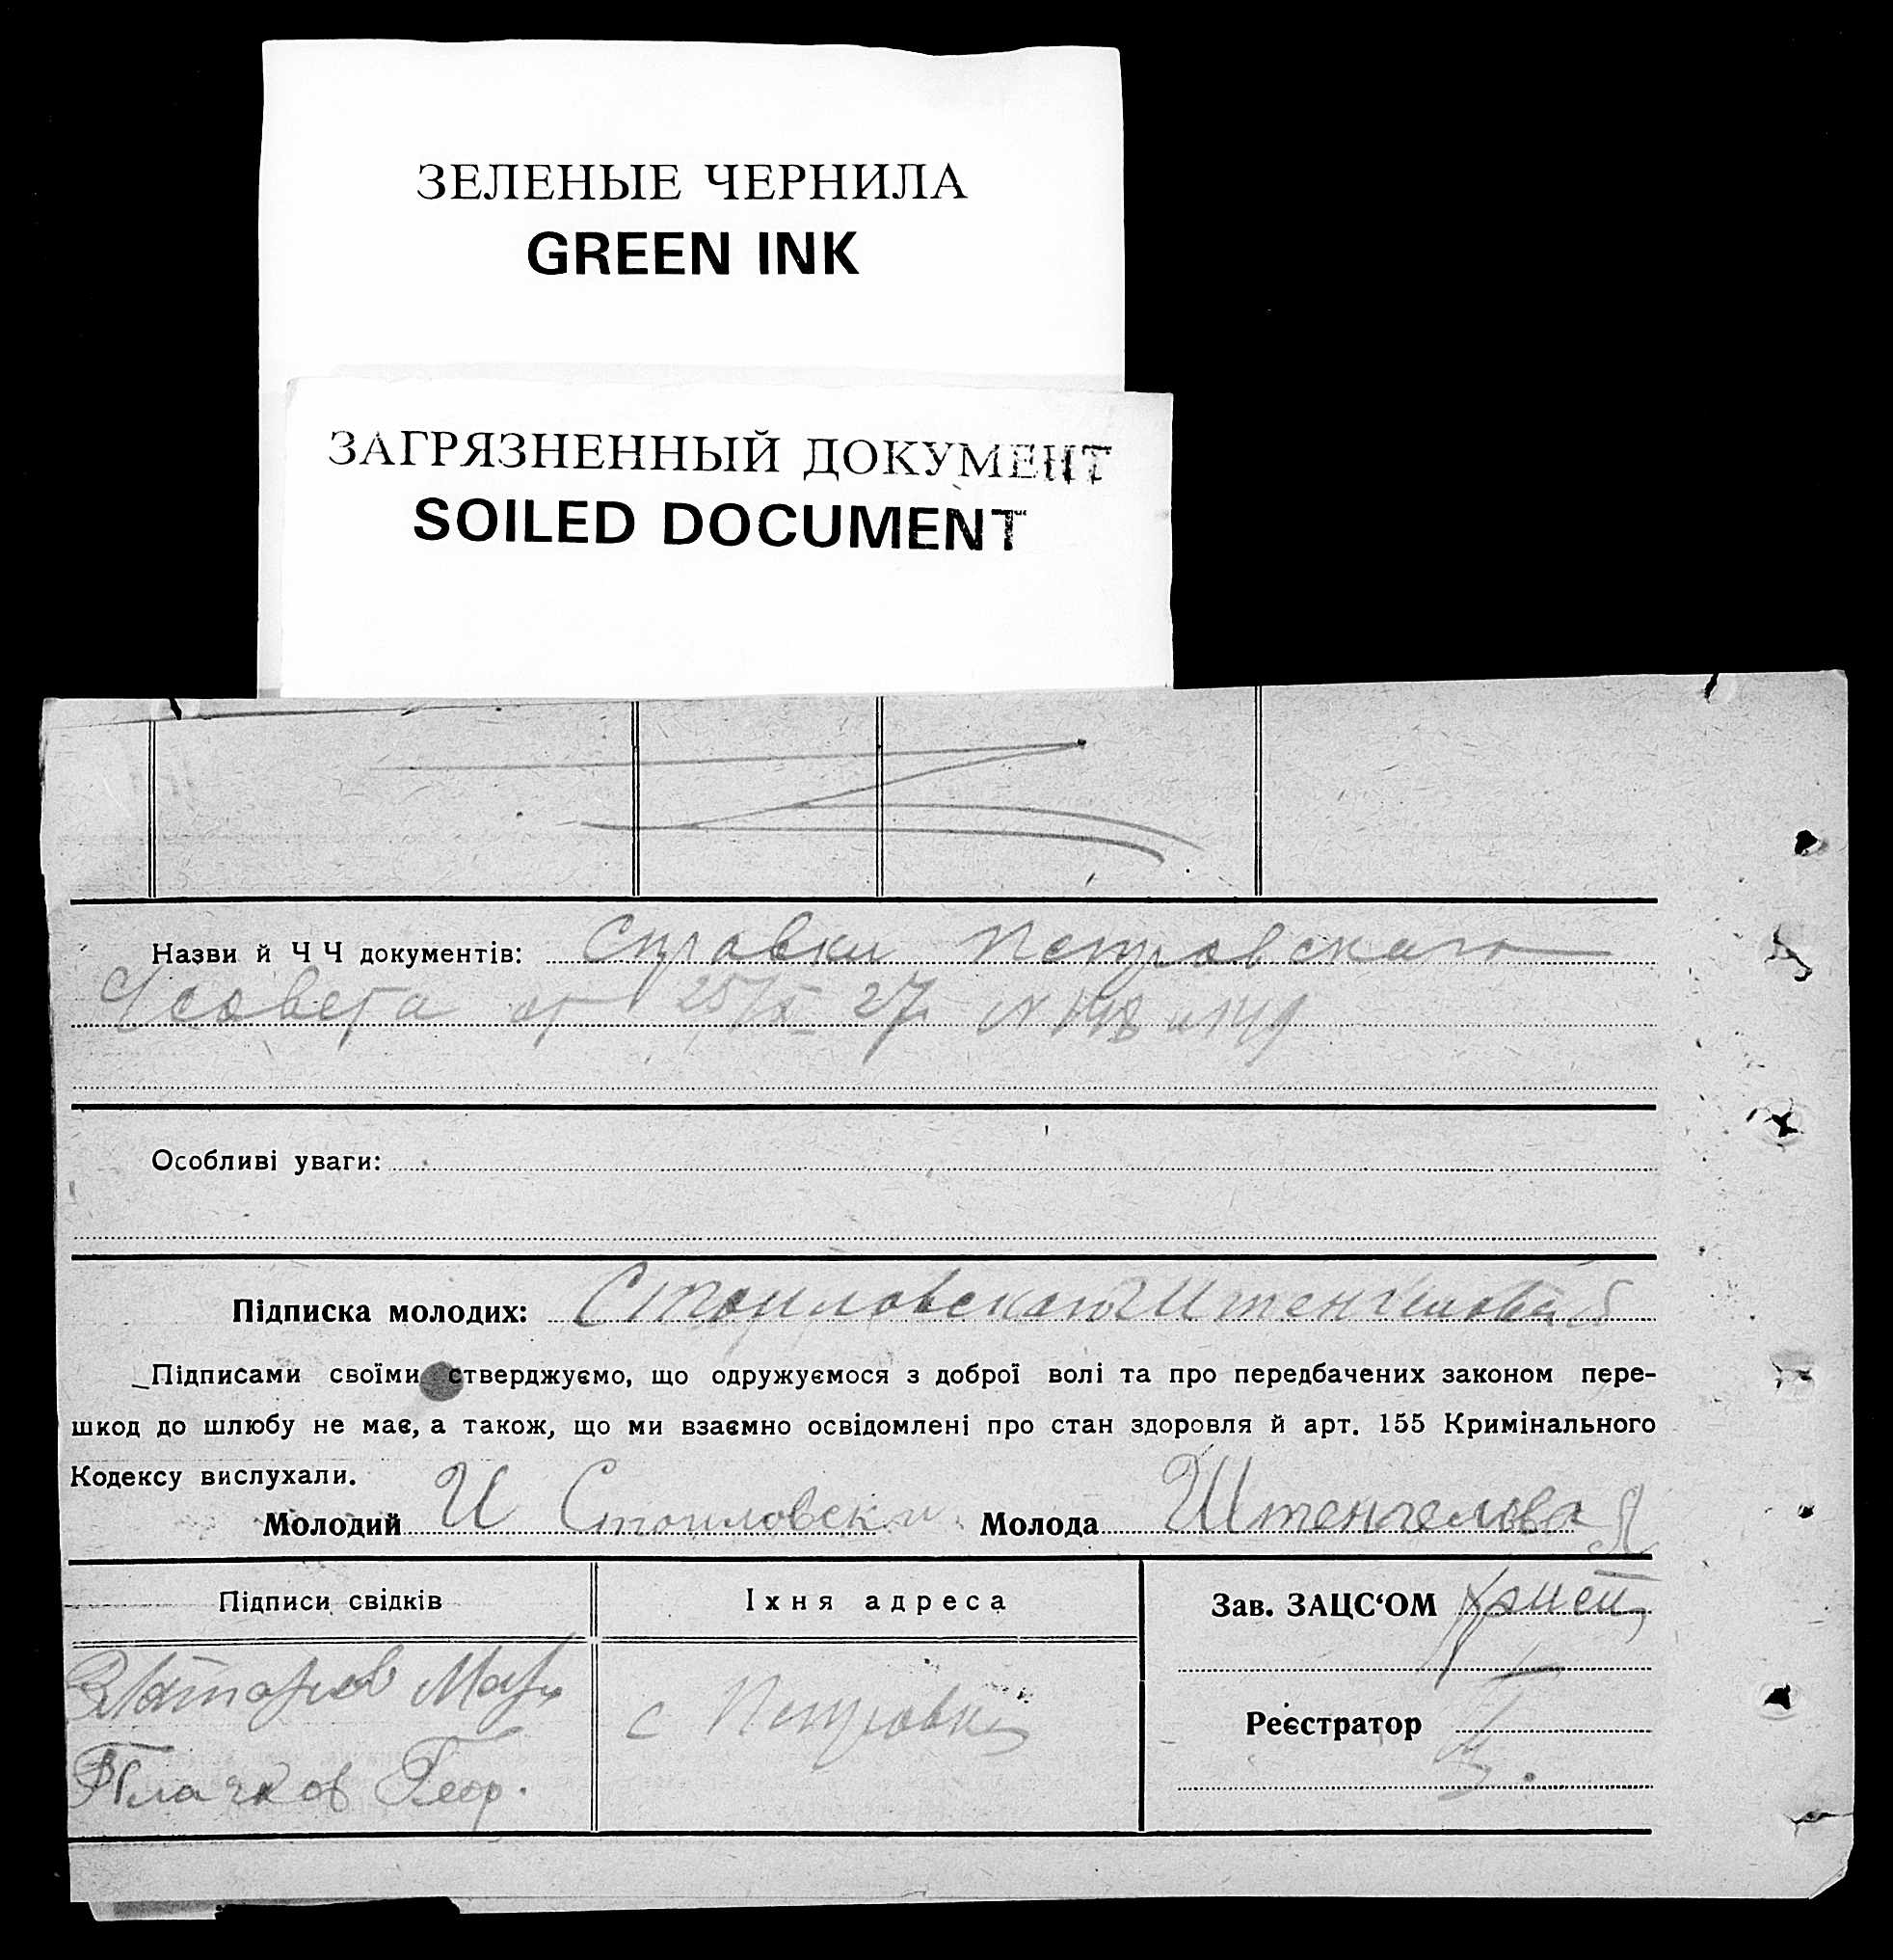 ЗЕЛЕНЫЕ ЧЕРНИЛА
GREEN INK
ЗАГРЯЗНЕННЫЙ ДОКУМЕНТ
SOILED DOCUMENT
Назви й Ч Ч документів: Справки Петровскаго
совета от 25/X 27 N 148 и 149
Особливі уваги:
Підписка молодих: Стоиловскаго
Підписами своїми стверджуємо, що одружуємося з доброї волі та про передбачених законом пере-
шкод до шлюбу не має, а також, що ми взаємно освідомлені про стан здоровля й арт. 155 Кримінального
Кодексу вислухали.
Молодий И Стоиловски Молода Штенгелова Я
Підписи свідків Іхня адреса Зав. ЗАЦС‘ОМ
с Петровка
Реєстратор
Плачков Геор.